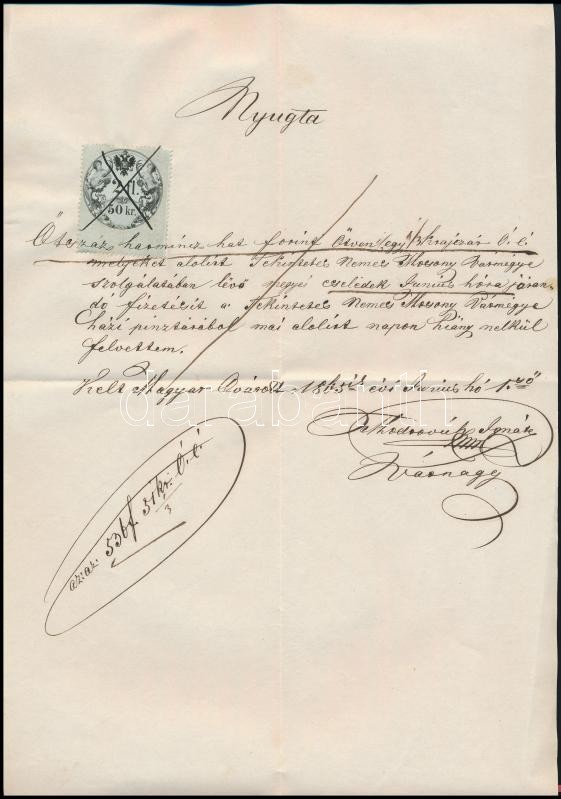 Nyugta
2 fl.
50 kr.
Ötszáz harmincz hat forint Ötven egy 1/3 krajczár Ó. é.
melyeket alólirt Tekintetes Nemes Mosony Vármegye
szolgálatában lévő megyei cselédek Junius hóra járan-
dó fizetéseit a Tekintetes Nemes Mosony Vármegye
házi pénztárából mai alólirt napon hiány nélkül
felvettem.
Kelt Magyar Óvárott 1865ik évi Junius hó 1ső
Ignácz
Várnagy
azaz: 536 f 51 kr. Ó. é.
3
darabanth